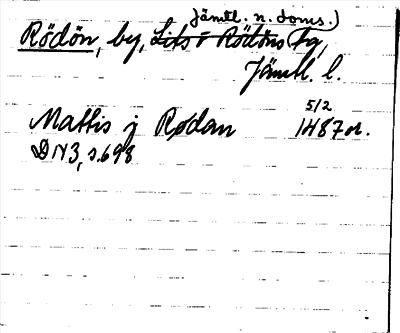 Jämtl. n. doms.)
Rödön, by, Lits o Rödöns tg,
Jämtl. l.
5/2
Mattis j Rødan 1487 or.
DN 3, s. 698